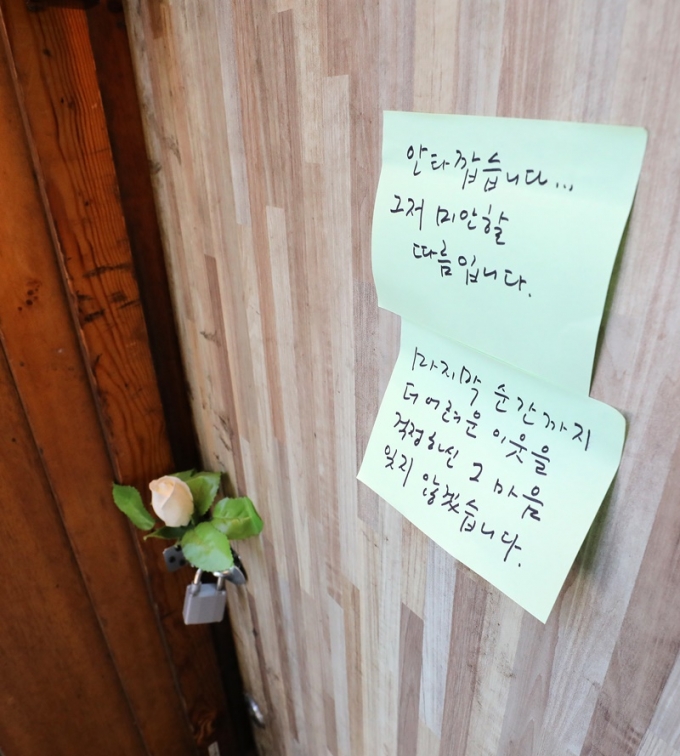 안타깝습니다...
그저 미안할
따름입니다.
마지막 순간까지
더 어려운 이웃을
걱정하신 그 마음
잊지 않겠습니다.